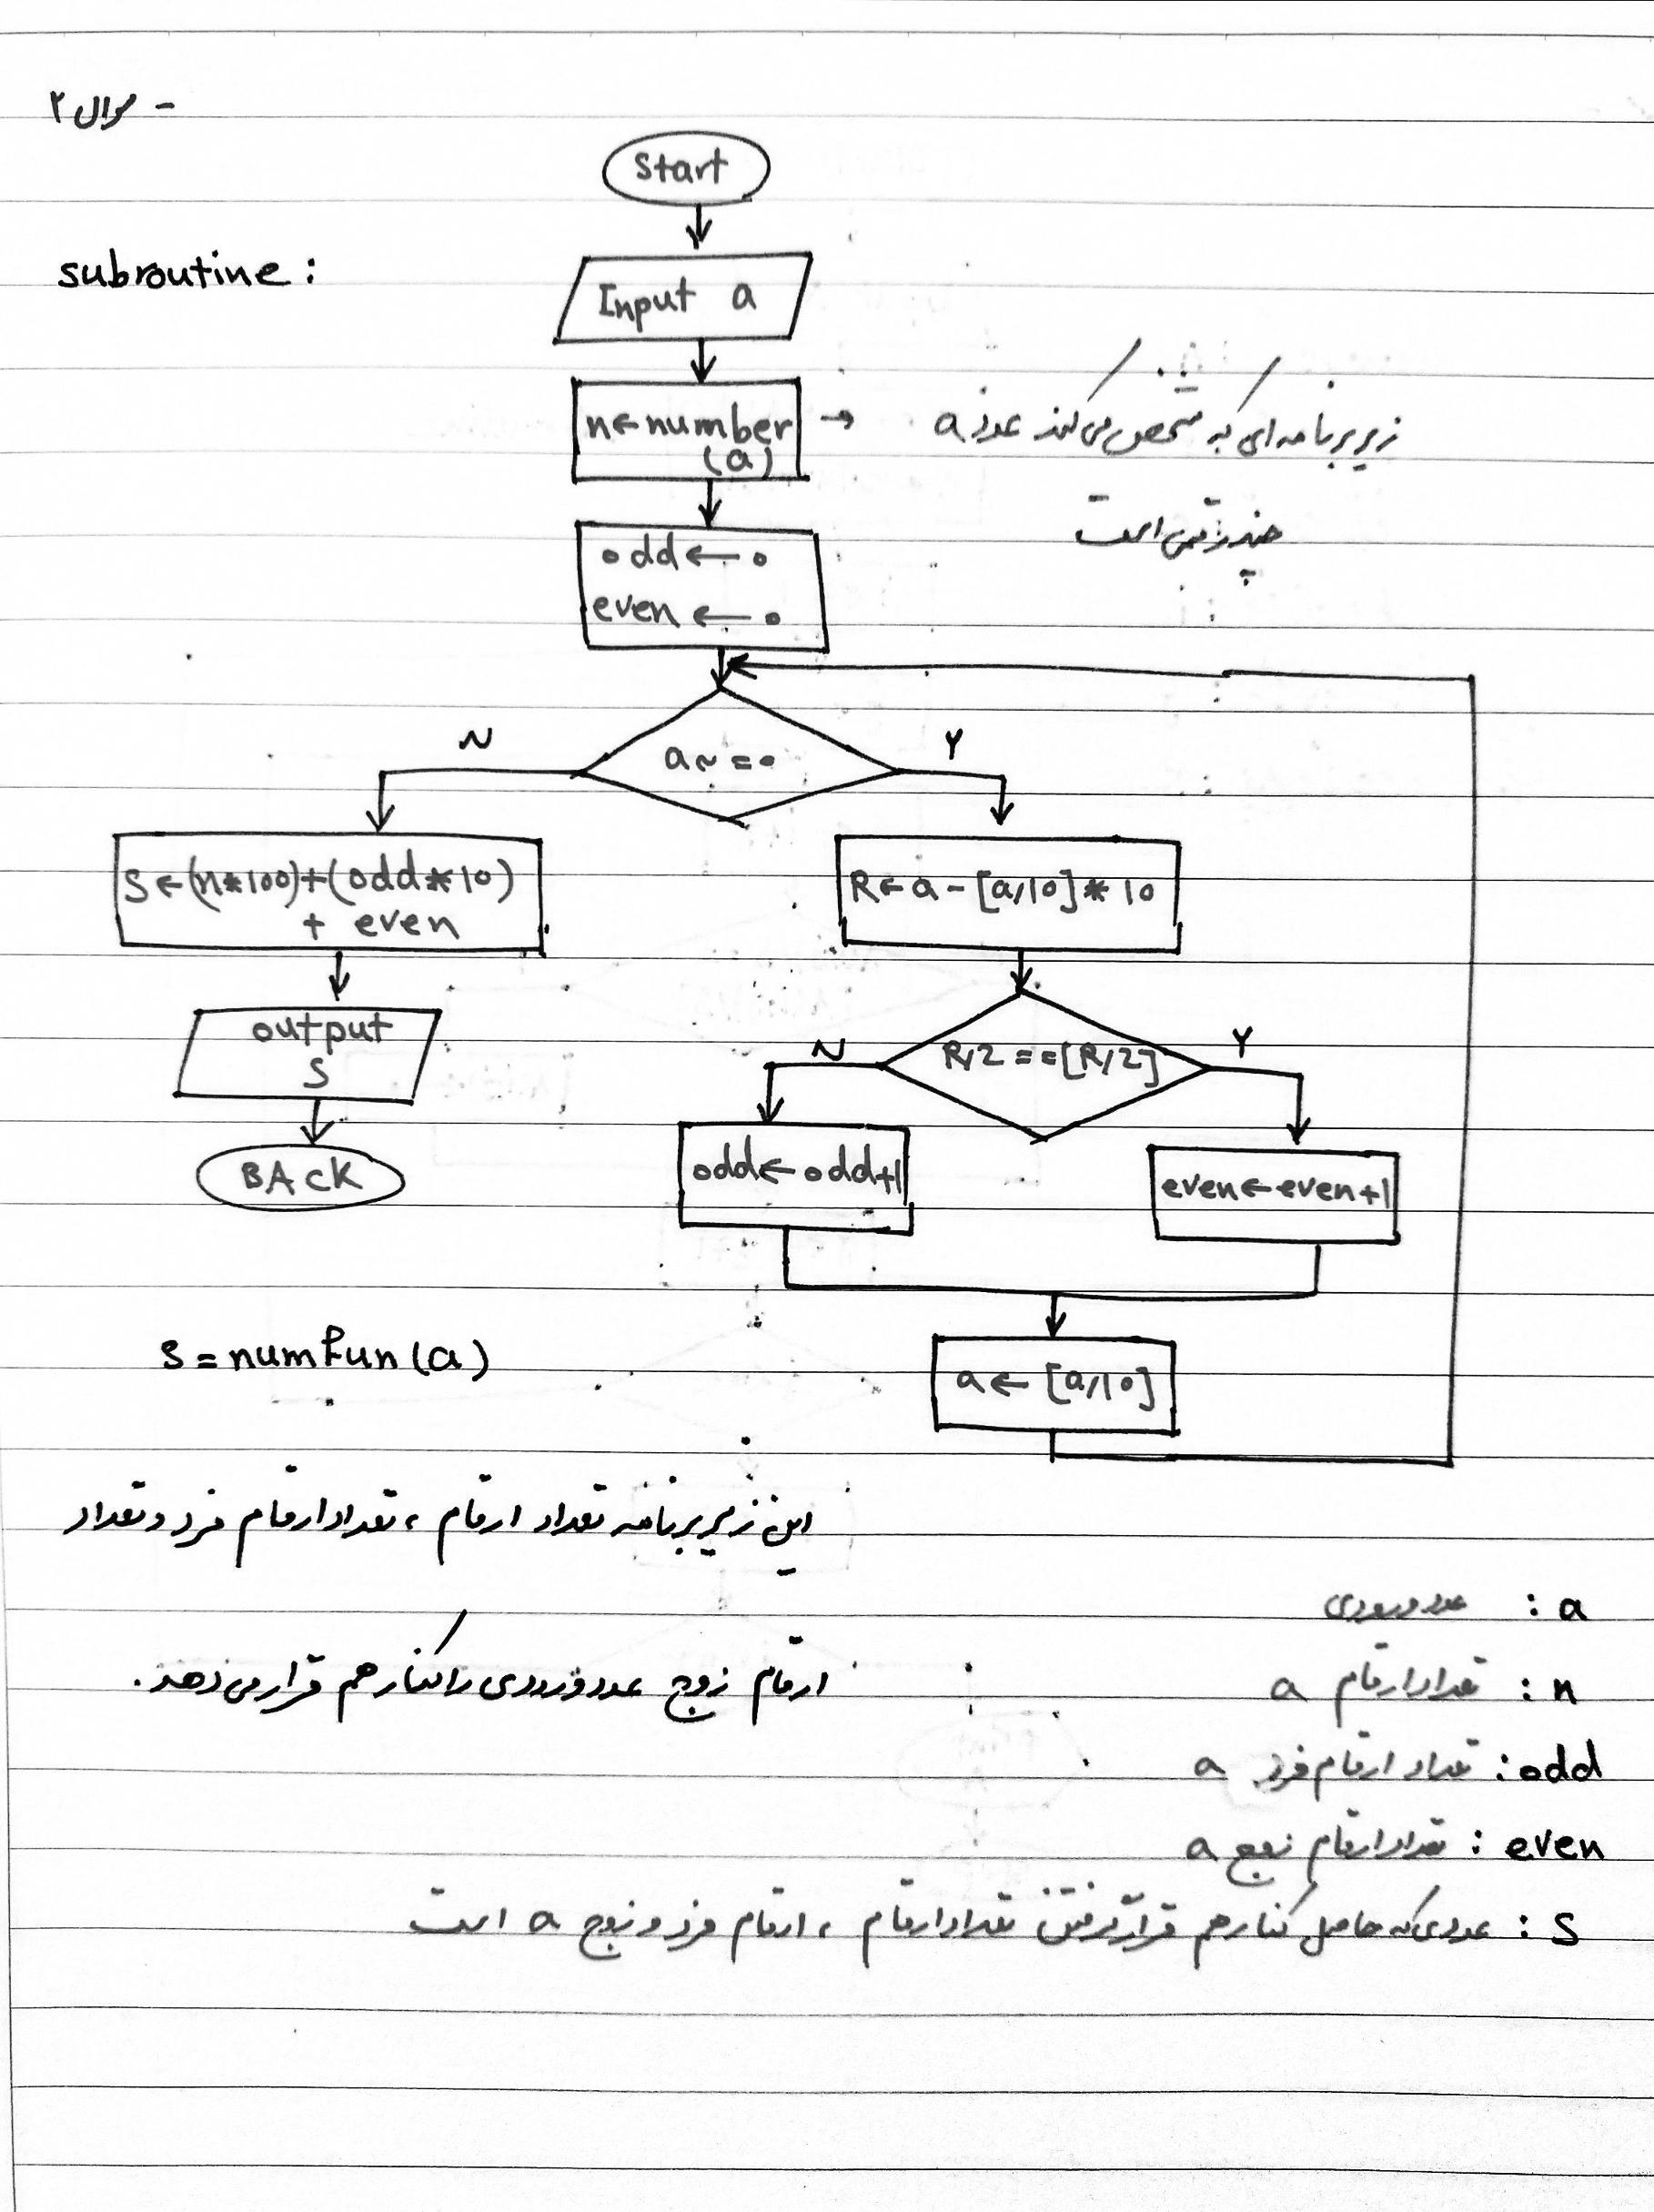 - سوال ۲
Start
subroutine :
Input a
n←number
(a)
→ زیر برنامه ای که مشخص می کند عدد a
چند رقمی است
odd ← 0
even ← 0
a ~ = 0
N
Y
S←(n*100)+(odd*10)
+ even
R← a - [a/10] * 10
output
S
R/2 == [R/2]
N
Y
BACK
odd← odd+1
even←even+1
a← [a/10]
S = numfun (a)
این زیر برنامه تعداد ارقام ، تعداد ارقام فرد و تعداد
ارقام زوج عدد ورودی را کنار هم قرار می دهد.
a : عدد ورودی
n : تعداد ارقام a
odd : تعداد ارقام فرد a
even : تعداد ارقام زوج a
S : عددی که حاصل کنار هم قرار گرفتن تعداد ارقام ، ارقام فرد و زوج a است